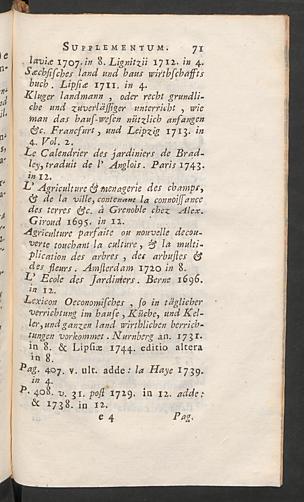 SUPPLEMENTUM. 71
laviæ 1707. in 8. Lignitzii 1712. in 4.
Sæchsisches land und haus wirthschaffts
buch. Lipsiæ 1711. in 4.
Kluger landmann, oder recht grundli-
che und zuverlässiger unterricht, wie
man das haus-wesen nützlich anfangen
&c. Francfurt, und Leipzig 1713. in
4. Vol. 2.
Le Calendrier des jardiniers de Brad-
ley, traduit de l' Anglois. Paris 1743.
in 12.
L' Agriculture & menagerie des champs,
& de la ville, contenant la connoissance
des terres &c. à Grenoble chez Alex.
Giroud 1695. in 12.
Agriculture parfaite ou nouvelle decou-
verte touchant la culture, & la multi-
plication des arbres, des arbustes &
des fleurs. Amsterdam 1720 in 8.
L' Ecole des Jardiniers. Berne 1696.
in 12.
Lexicon Oeconomisches, so in täglicher
verrichtung im hause, Küche, und Kel-
ler, und ganzen land wirthlichen berrich-
tungen vorkommet. Nurnberg an. 1731.
in 8. & Lipsiæ 1744. editio altera
in 8.
Pag. 407. v. ult. adde: la Haye 1739.
in 4.
P. 408. v. 31. post 1729. in 12. adde:
& 1738. in 12.
e 4 Pag.